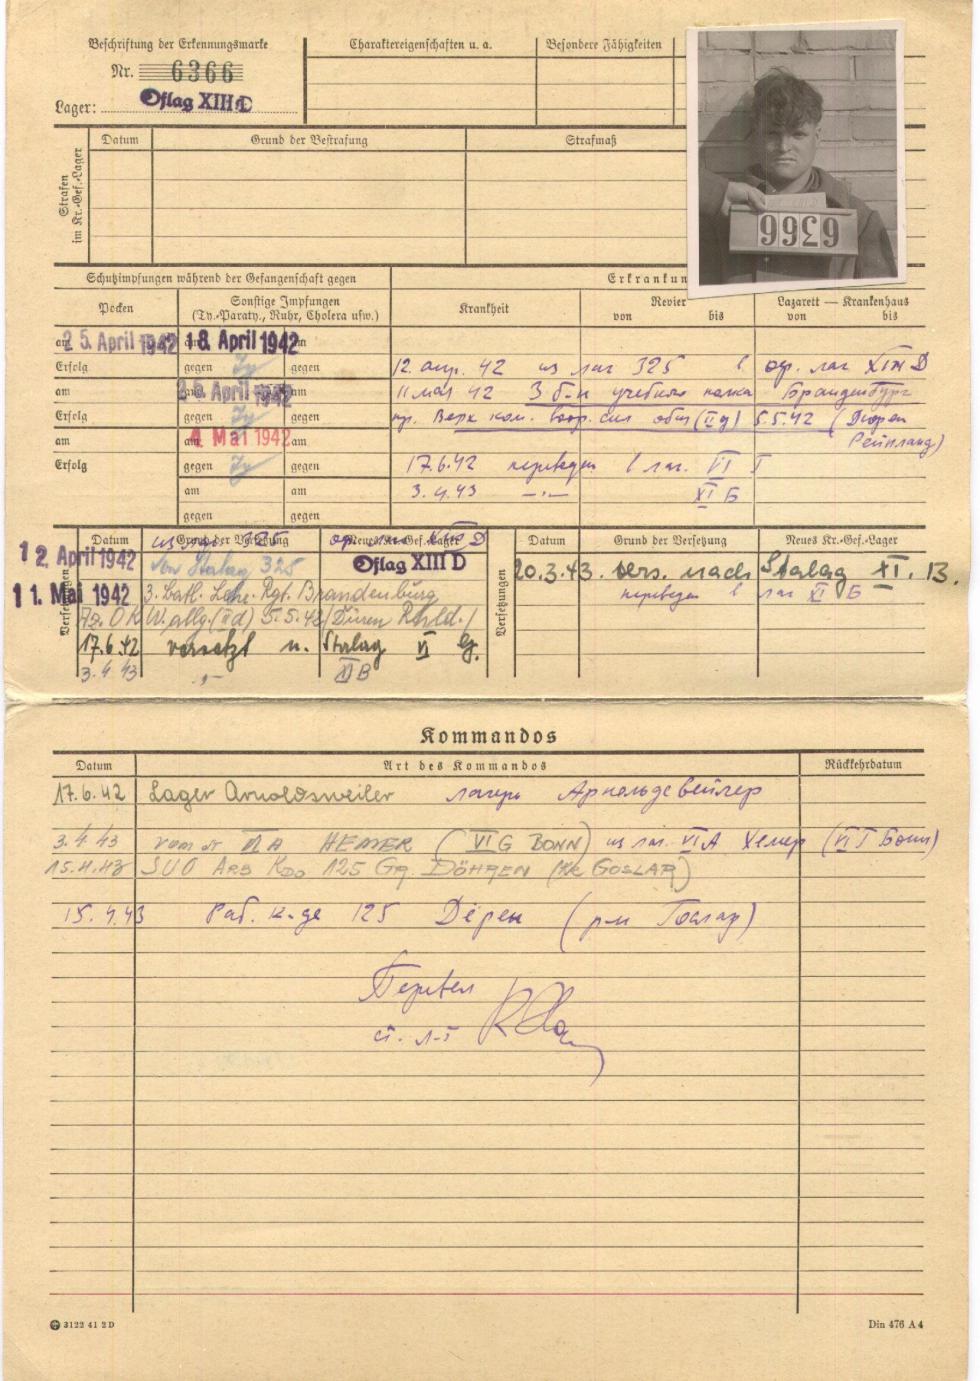 Beschriftung der Erkennungsmarke
Nr. 6366
Lager: Oflag XIII D
Charaktereigenschaften u. a.
Besondere Fähigkeiten
6366
Strafen im Kr.-Gef.-Lager
Datum Grund der Bestrafung Strafmaß
Schutzimpfungen während der Gefangenschaft gegen
Erkrankun
Pocken
Sonstige Impfungen
(Ty.-Paraty., Ruhr, Cholera usw.)
Krankheit
Revier
von bis
Lazarett — Krankenhaus
von bis
am 25. April 1942 am 18. April 1942 am
Erfolg gegen Ty gegen
12. апр. 42 из лаг 325 в оф. лаг XIII D
am am 25. April 1942 am
11 мая 42 3 б-н учебного полка Бранденбург
Erfolg gegen Ty gegen
пр. Верх ком. воор. сил общ (II д) 5.5.42 (Дюрен
Рейнланд)
am am 4 Mai 1942 am
Erfolg gegen Ty gegen
17.6.42 переведен в лаг. VI Г
am am
3.4.43 —〃— XI Б
gegen gegen
Versetzungen
Datum Grund der Versetzung Neues Kr.-Gef.-Lager
из лаг 325 оф. лаг XIII D
12. April 1942 von Stalag 325 Oflag XIII D
11. Mai 1942 3. Batl. Lehr. Rgt. Brandenburg
Az. OKW. allg. (II d) 5.5.42 (Düren Rhld.)
17.6.42 versetzt n. Stalag VI G.
3.4.43 〃 XI B
Versetzungen
Datum Grund der Versetzung Neues Kr.-Gef.-Lager
20.3.43. vers. nach Stalag XI. B.
переведен в лаг XI Б
Kommandos
Datum Art des Kommandos Rückkehrdatum
17.6.42 Lager Arnoldsweiler лагерь Арнольдсвейлер
3.4.43 VI A HEMER (VI G BONN) из лаг. VI A Хемер (VI Г Бонн)
15.4.43 ARB KDO 125 GR. DÖHREN (KR. GOSLAR)
15.4.43 Раб. к-де 125 Дёрен (р-н Гослар)
Перевел
ст. л-т
3122 41 2 D
Din 476 A 4